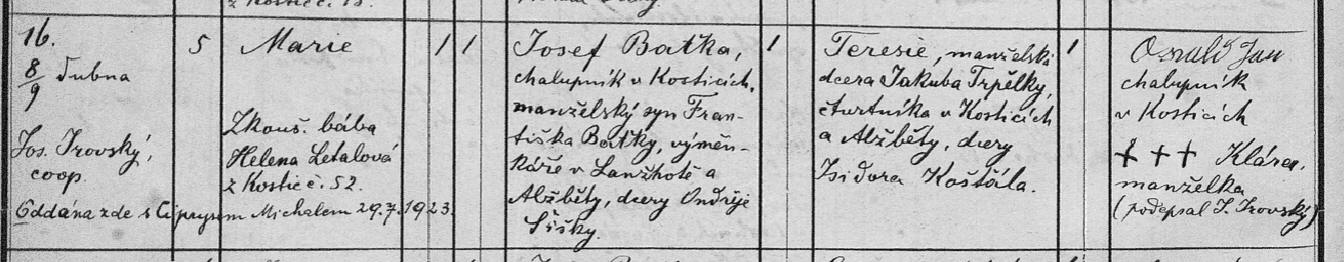 z Kostic č. 13.
16.
8/9 dubna
Jos. Irovský,
coop.
5
Marie
Zkouš. bába
Helena Letalová
z Kostic č. 52.
Oddána zde s Ciprysem Michalem 29.7.1923.
1 1
Josef Batka,
chalupník v Kosticích,
manželský syn Fran-
tiška Batky, výměn-
káře v Lanžhotě a
Alžběty, dcery Ondřeje
Šišky.
1
Teresie, manželská
dcera Jakuba Trpělky,
čtvrtníka v Kosticích
a Alžběty, dcery
Isidora Košťála.
1
Osvald Jan
chalupník
v Kosticích
+++ Klára,
manželka
(podepsal J. Irovský)